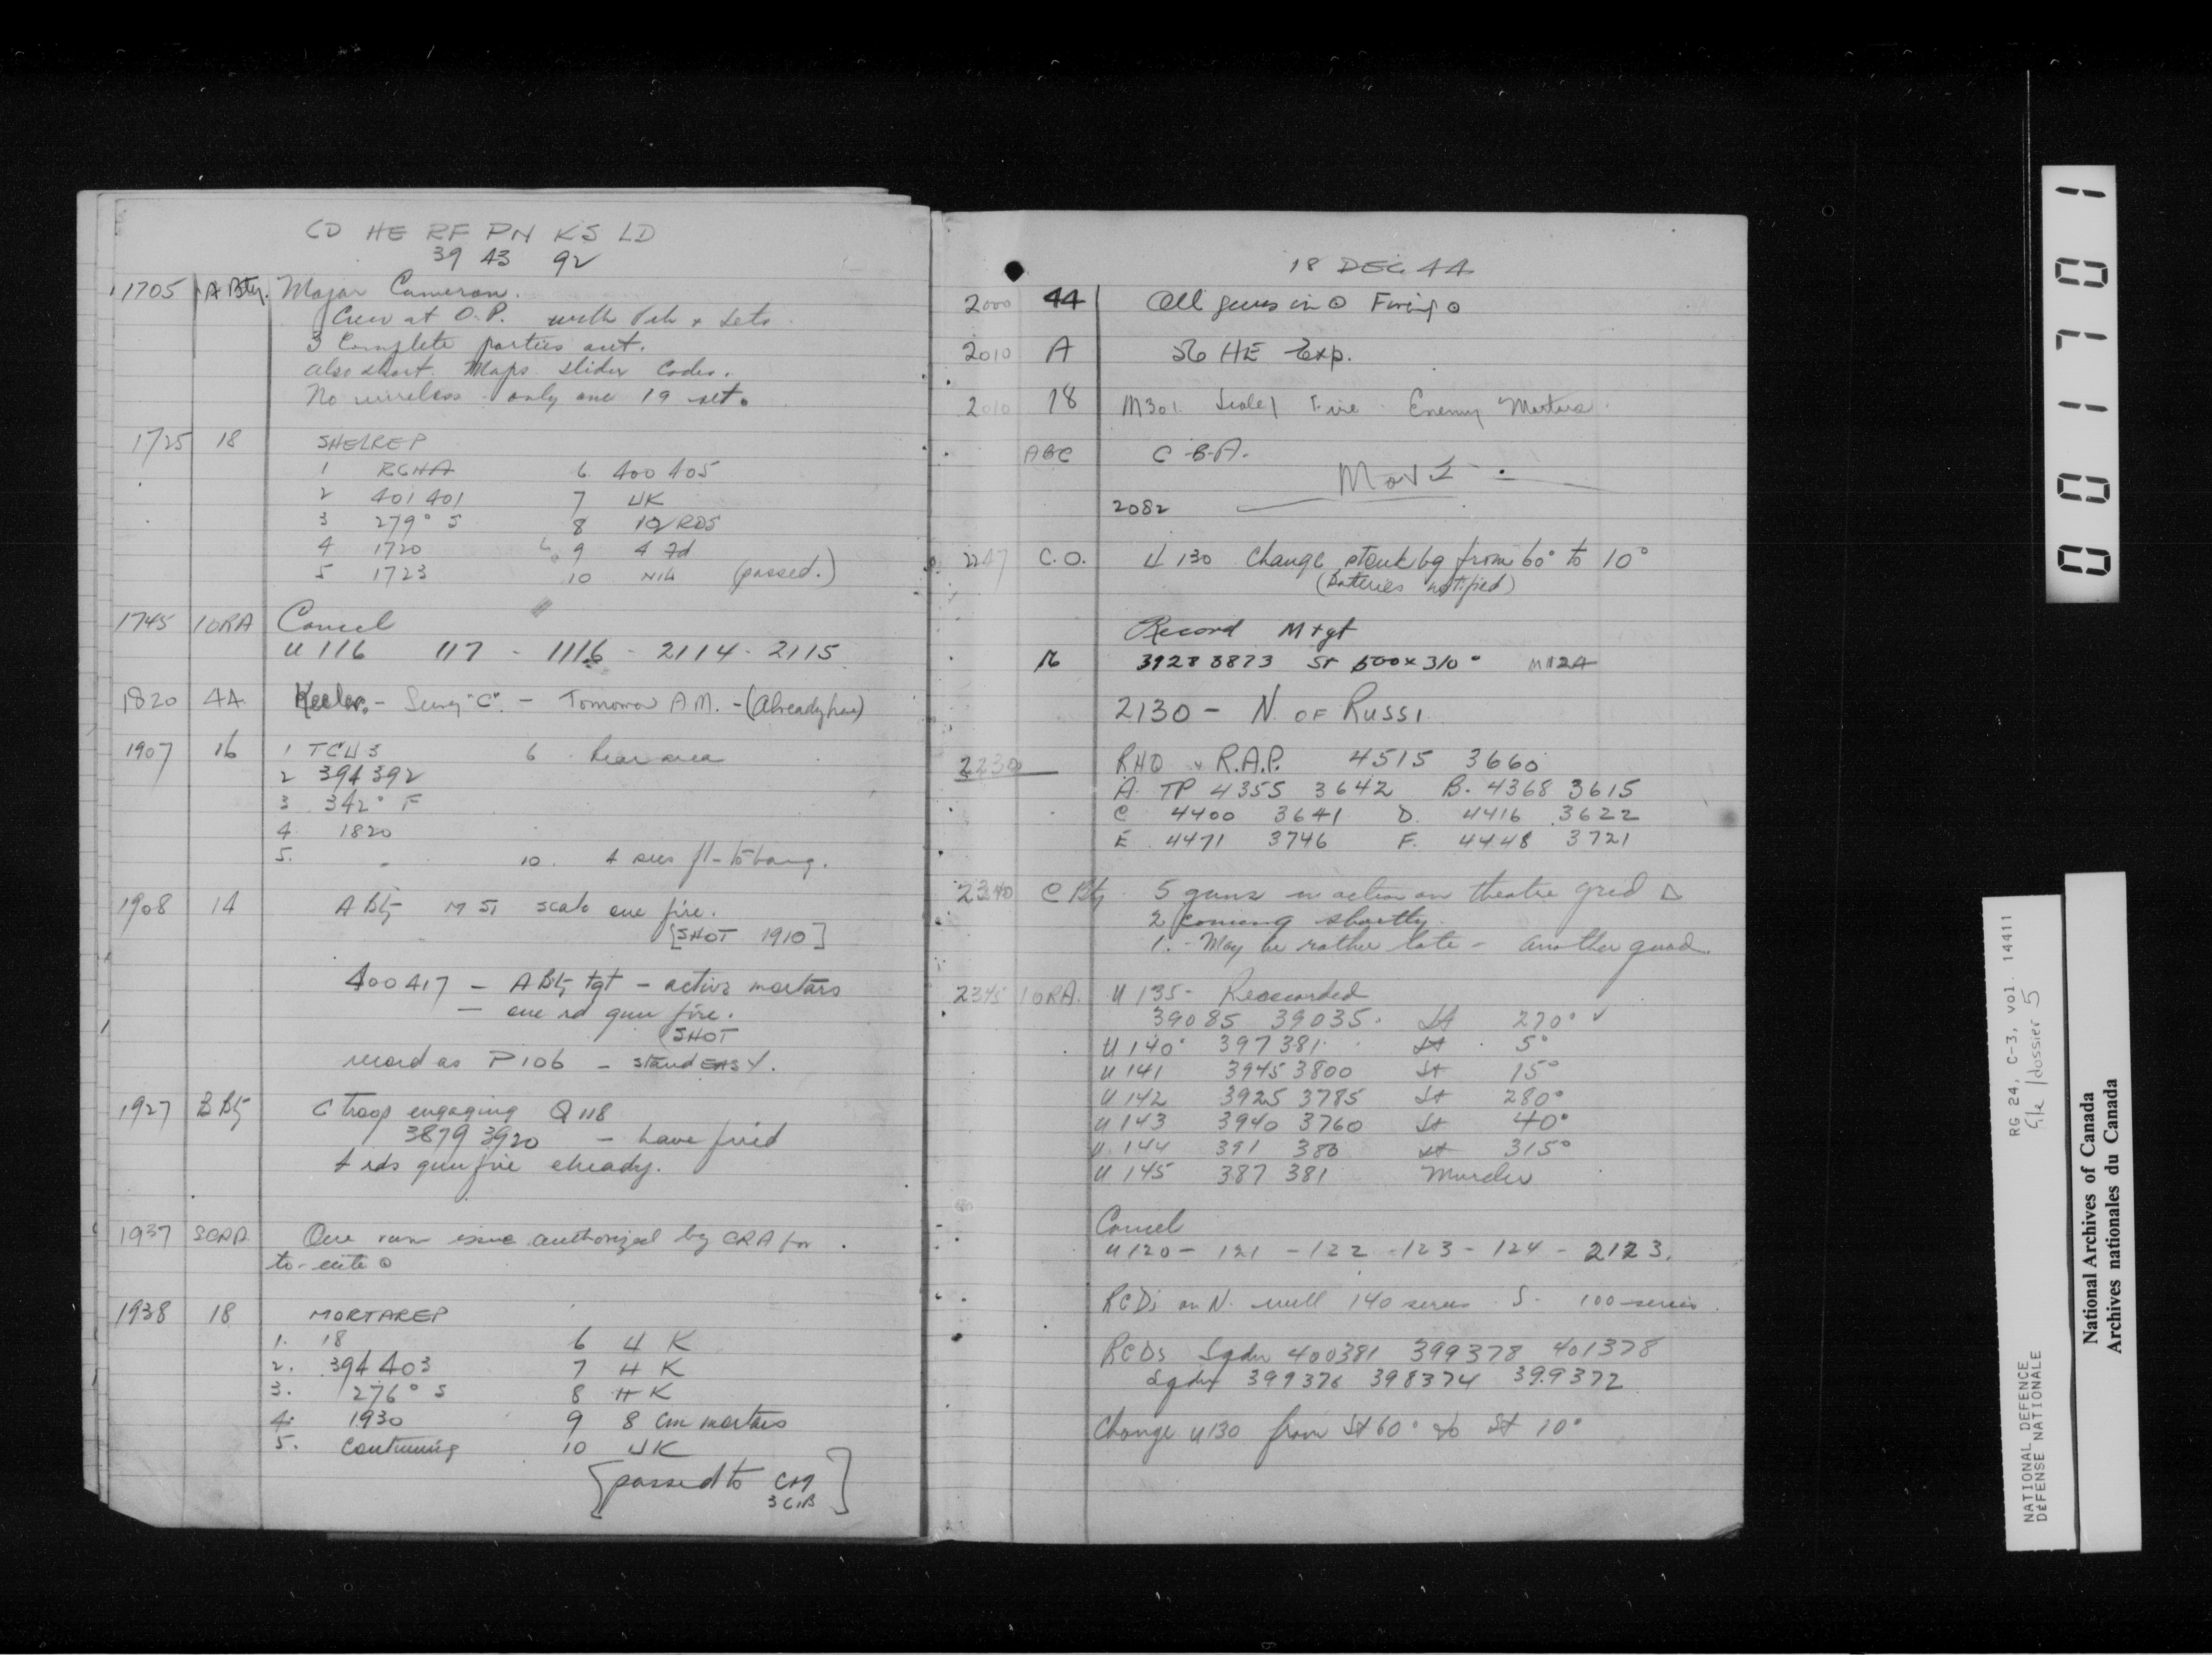 CD HE RF PN KS LD
39 43 92
1705 A Bty. Major Cameron.
Crew at O.P. with Tels + Sets
3 Complete parties out.
also short. Maps. Slidex Codes.
No wireless - only one 19 set.
1725 18 SHELREP
1 RCHA 6 400 405
2 401 401 7 UK
3 279° S 8 12 RDS
4 1720 9 4 Fd
5 1723 10 NIL (passed.)
1745 IORA Cancel
U 116 117 - 1116 - 2114 - 2115
1820 44 Keeler. - Survey "C". - Tomorrow A.M. - (Already here)
1907 16 1 TCU 3 6 Rear area
2 394 392
3 342° F
4 1820
5. " 10. 4 secs fl-to-bang.
1908 14 A Bty M 51 scale one fire.
[SHOT 1910]
400417 - A Bty tgt - active mortars
- one rd gun fire.
(SHOT
record as P106 - stand EASY.
1927 B Bty C troop engaging Q 118
3879 3920 - have fired
4 rds gun fire already.
1937 SCRA One rum issue authorized by CRA for
to-nite
1938 18 MORTAREP
1. 18 6 U K
2. 394 403 7 U K
3. 276° S 8 U K
4. 1930 9 8 cm mortars
5. Continuing 10 UK
[passed to CH
3 CIB]
18 DEC 44
2000 44 All guns in Firing
2010 A 56 HE Exp.
2010 18 M301 Scale 1 Fire Enemy Mortars.
ABC C.B.A.
MOVE
2082
2247 C.O. U 130 Change stonk bg from 60° to 10°
(Batteries notified)
Record M tgt
16 3928 3873 St 500x 310° M124
2130 - N. OF RUSSI
2230 RHQ & R.A.P. 4515 3660
A. TP 4355 3642 B. 4368 3615
C 4400 3641 D. 4416 3622
E 4471 3746 F. 4448 3721
2340 C Bty 5 guns in action on theatre grid
2 coming shortly.
1. - May be rather late - another quad.
2345 IORA. U 135 - Rerecorded
39085 39035. St 270° ✓
U 140 397 381 St 5°
U 141 3945 3800 St 15°
U 142 3925 3785 St 280°
U 143 3940 3760 St 40°
U 144 391 380 St 315°
U 145 387 381 Murder
Cancel
U 120 - 121 - 122 - 123 - 124 - 2123.
RCDs on N. will 140 series S. 100 series.
RCDs Sqdn 400381 399378 401378
Sqdn 399376 398374 399372
Change U130 from St 60° to St 10°
001701
RG 24, C-3, vol. 14411
file/dossier 5
NATIONAL DEFENCE
DÉFENSE NATIONALE
National Archives of Canada
Archives nationales du Canada